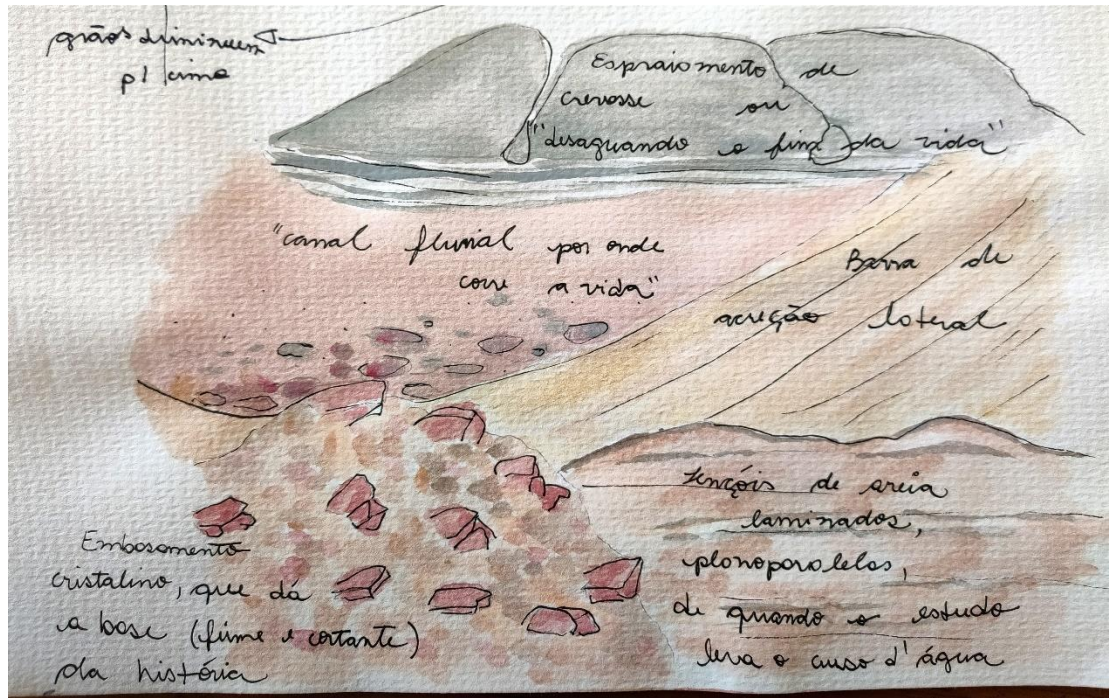 grãos diminuem
p/ cima
Espraiamento de
crevasse ou
"desaguando o fim da vida"
"canal fluvial por onde
corre a vida"
Barra de
acreção lateral
Lençóis de areia
laminados,
planoparalelas,
de quando o estudo
leva o curso d'água
Embasamento
cristalino, que dá
a base (firme e cortante)
da história